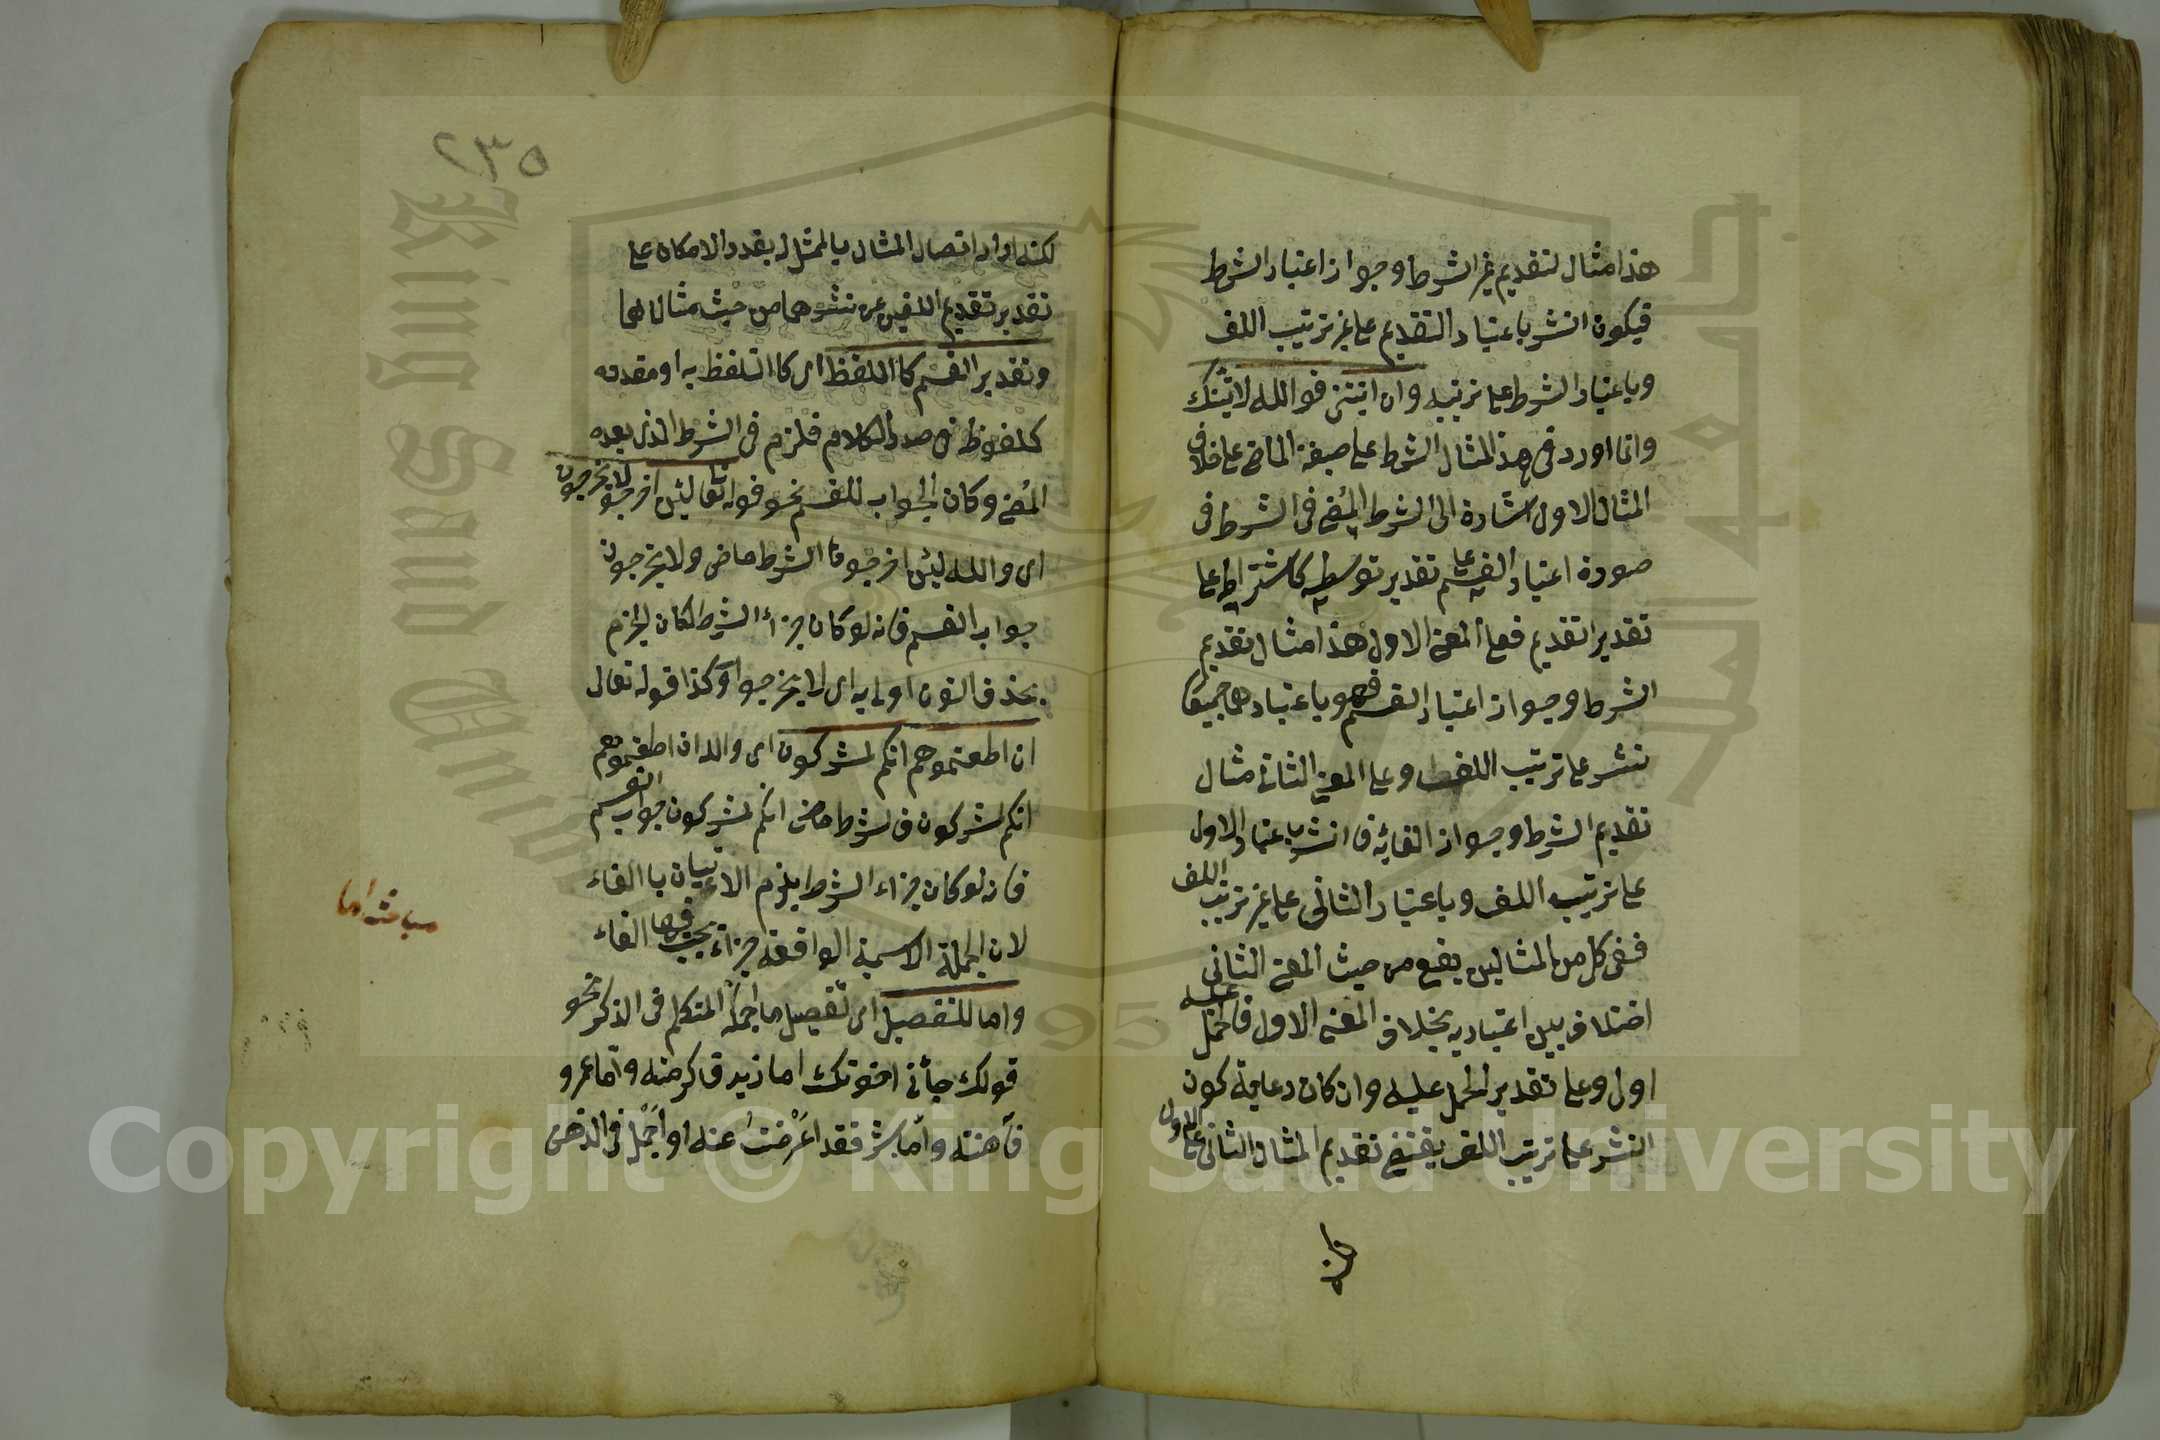 هذا مثال لتقديم غير الشرط وجواز اعتبار الشرط
فيكون النشر باعتبار التقديم على غير ترتيب اللف
وباعتبار الشرط على ترتيبه وان اتيتني فوالله لاتينك
وانما اورد في هذا المثال الشرط على صيغة الماضي على خلاف
المثال الاول اشارة الى الشرط المضي في الشرط في
صورة اعتبار القسم على تقدير توسطه كاشتراطه على
تقدير تقديم فعلى المعنى الاول هذا مثال تقديم
الشرط وجواز اعتبار القسم فهو باعتبارهما جميعا
نشر على ترتيب اللف وعلى المعنى الثاني مثال
تقديم الشرط وجواز الغائه فالنشر باعتبار الاول
على ترتيب اللف وباعتبار الثاني على غير ترتيب اللف
ففي كل من المثالين يقع من حيث المعنى الثاني
اختلاف بين اعتباريه بخلاف المعنى الاول فالحمل عليه
اولى وعلى تقدير الحمل عليه وان كان رعاية كون
النشر على ترتيب اللف يقتضي تقديم المثال الثاني على الاول
٢٣٥
لكنه اراد اتصال المثال بالممثل بقدر الامكان على
تقدير تقديم اللفين عن نشرهما من حيث مثالاهما
وتقدير القسم كاللفظ اى كالتلفظ به او مقدره
كملفوظ في صدر الكلام فلزم في الشرط الذى بعده
المضي وكان الجواب للقسم نحو قوله تعالى لئن اخرجوا لا يخرجون
اى والله لئن اخرجوا فالشرط ماض ولا يخرجون
جواب القسم فانه لو كان جزاء الشرط لكان الجزم
بحذف النون اولى به اى لا يخرجوا وكذا قوله تعالى
ان اطعتموهم انكم لمشركون اى والله ان اطعتموهم
انكم لمشركون فالشرط ماض انكم لمشركون جواب القسم
فانه لو كان جزاء الشرط يلزم الاتيان بالفاء
لان الجملة الاسمية الواقعة جزاء يجب فيها الفاء
واما للتفصيل اى تفصيل ما اجمله المتكلم في الذكر نحو
قولك جاءني اخوتك اما زيد فاكرمته واما عمرو
فاهنته واما بشر فقد اعرضت عنه او اجمل في الذهن
مباحث اما